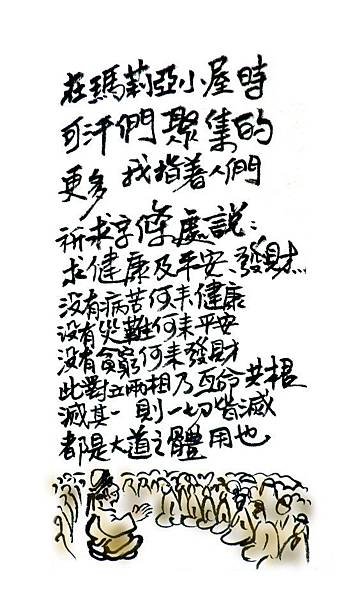 在瑪莉亞小屋時
可汗們聚集的
更多 我指著人們
祈求字條處說:
求健康及平安、發財...
沒有病苦何來健康
沒有災難何來平安
沒有貧窮何來發財
此對立兩相乃互命共
滅其一則一切皆滅
都是大道之體用也